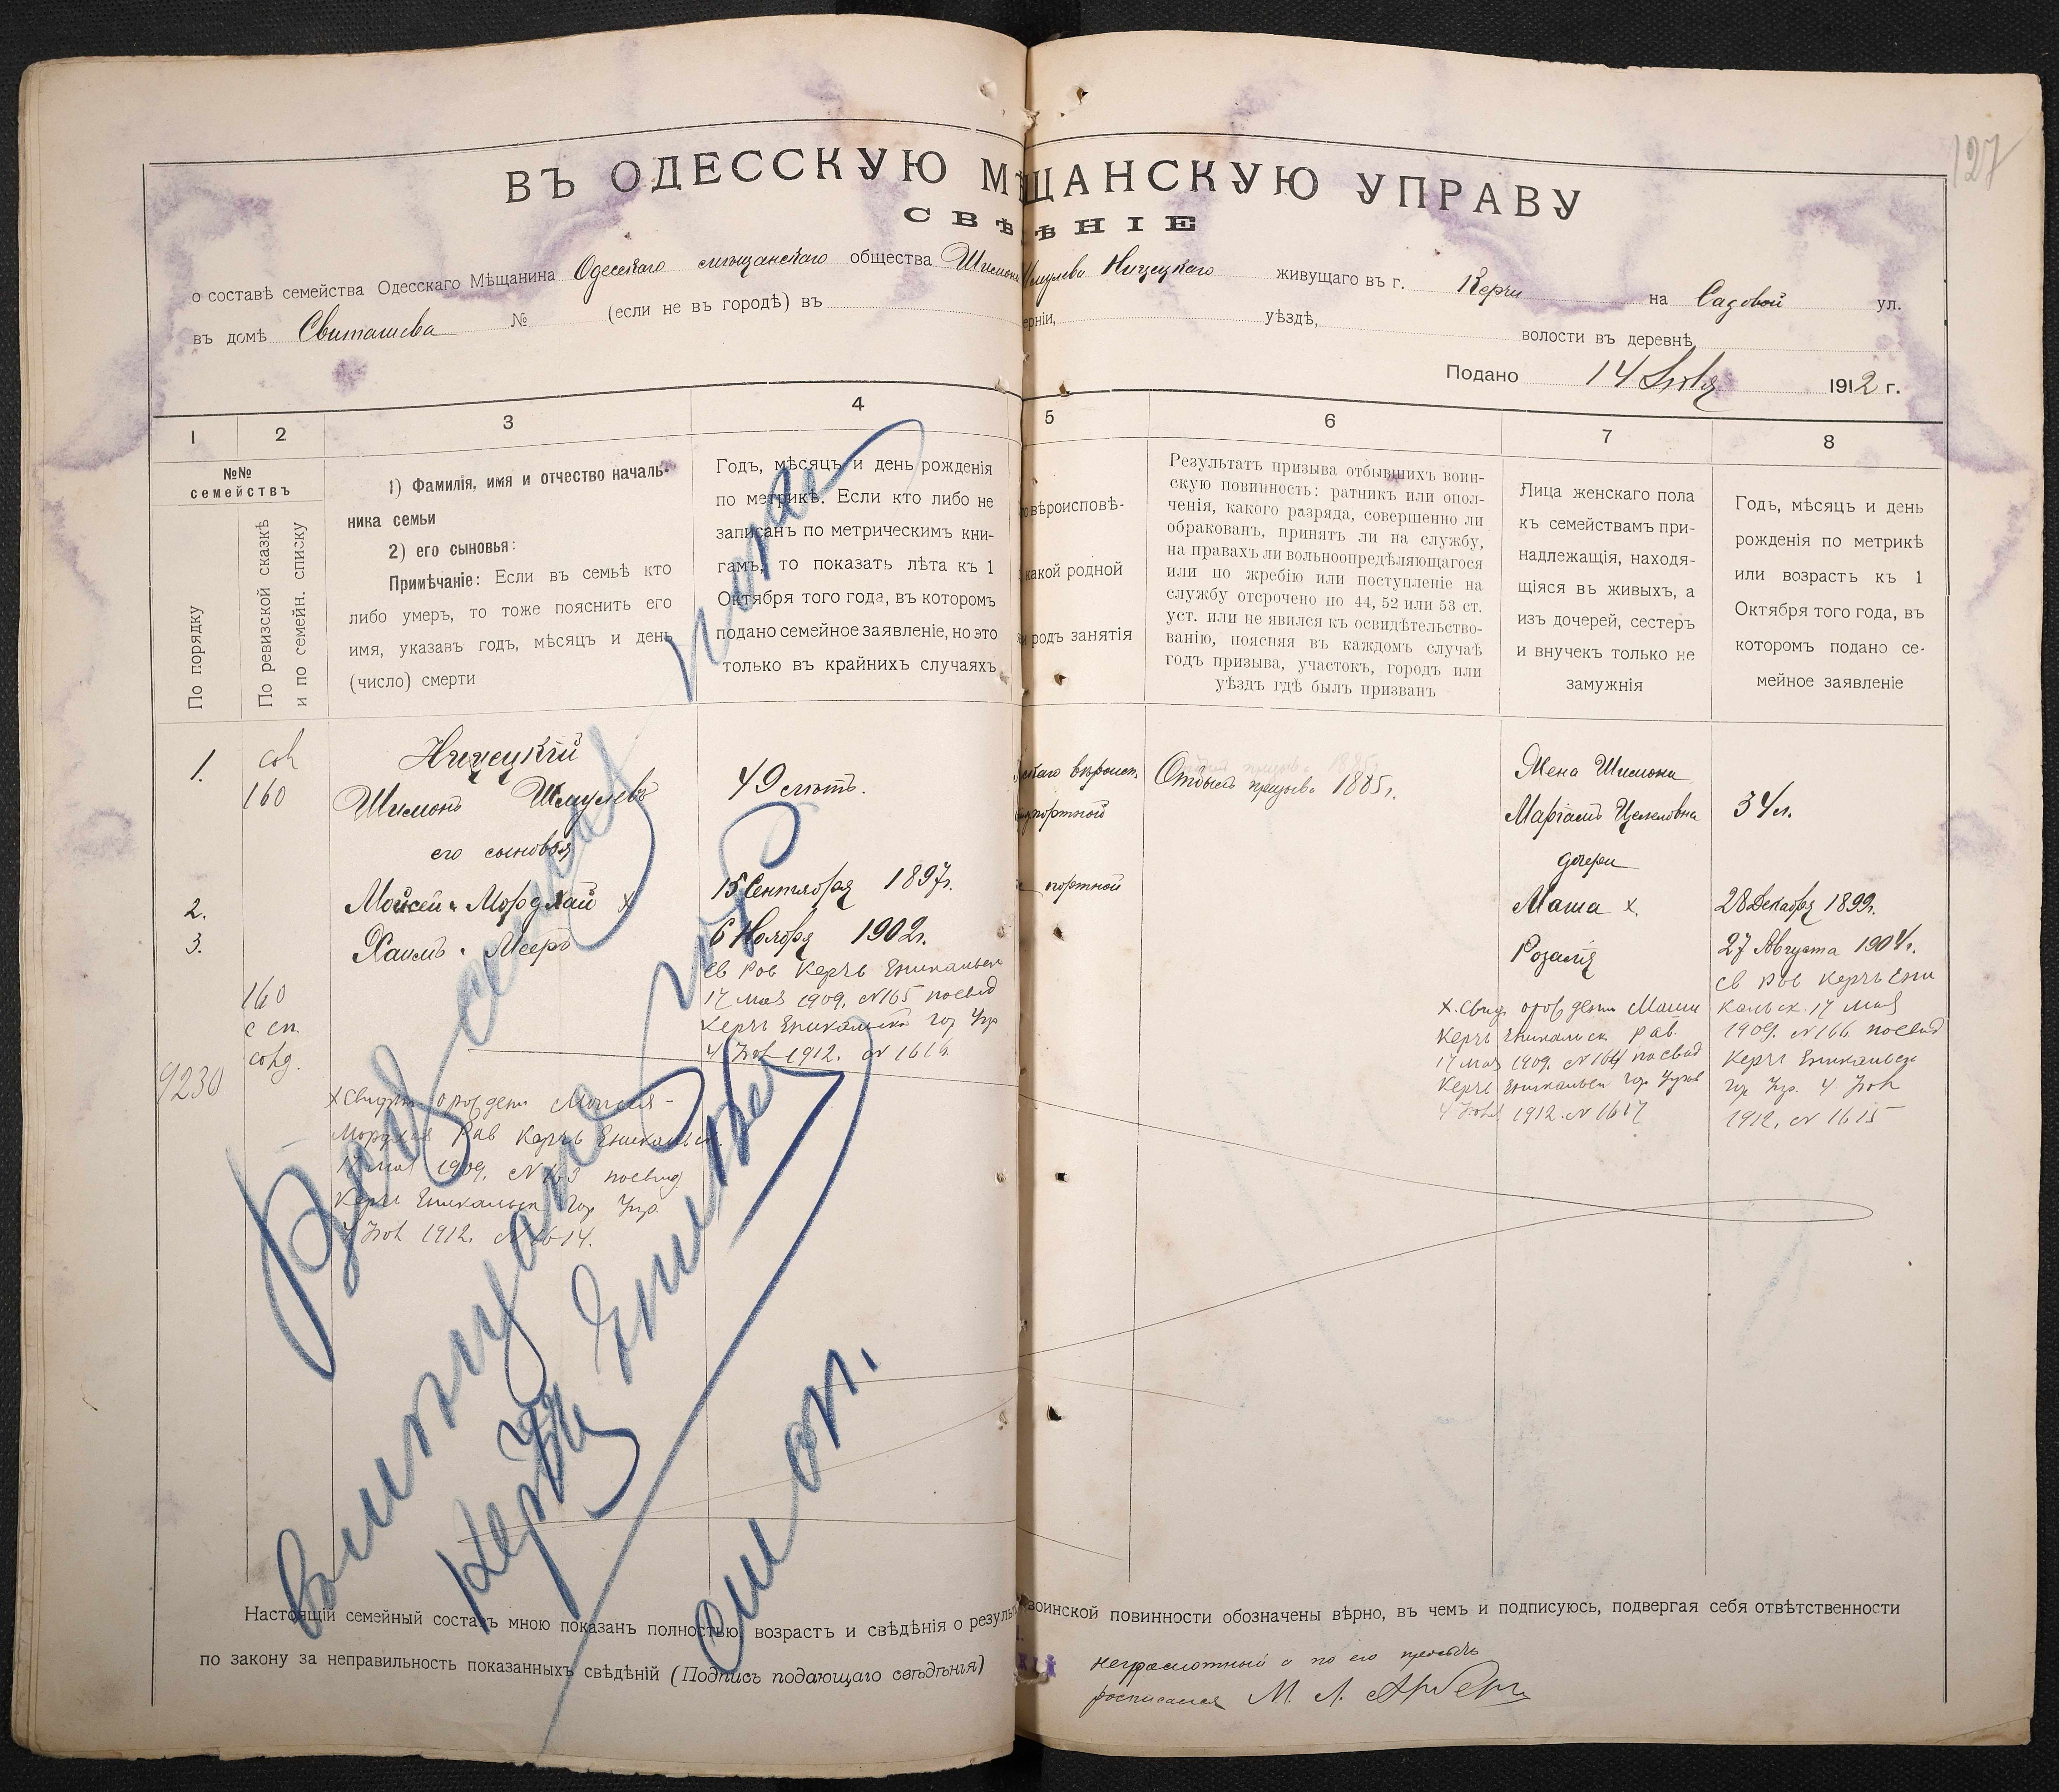 127
ВЪ ОДЕССКУЮ МѢЩАНСКУЮ УПРАВУ
СВѢ ѢНІЕ
о составѣ семейства Одесскаго Мѣщанина Одесскаго мѣщанскаго общества Шимона Шмулева Ницецкаго живущаго въ г. Керчи на Садовой ул.
въ домѣ Свиташева № (если не въ городѣ) въ ерніи, уѣздѣ, волости въ деревнѣ
Подано 14 1912 г.
1 2 3 4 5 6 7 8
№№
семействъ
По порядку
По ревизской сказкѣ
и по семейн. списку
1) Фамилія, имя и отчество началь-
ника семьи
2) его сыновья:
Примѣчаніе: Если въ семьѣ кто
либо умеръ, то тоже пояснить его
имя, указавъ годъ, мѣсяцъ и день
(число) смерти
Годъ, мѣсяцъ и день рожденія
по метрикѣ. Если кто либо не
записанъ по метрическимъ кни-
гамъ, то показать лѣта къ 1
Октября того года, въ которомъ
подано семейное заявленіе, но это
только въ крайнихъ случаяхъ
вѣроисповѣ-
какой родной
и родъ занятія
Результатъ призыва отбывшихъ воин-
скую повинность: ратникъ или опол-
ченія, какого разряда, совершенно ли
обракованъ, принятъ ли на службу,
на правахъ ли вольноопредѣляющагося
или по жребію или поступленіе на
службу отсрочено по 44, 52 или 53 ст.
уст. или не явился къ освидѣтельство-
ванію, поясняя въ каждомъ случаѣ
годъ призыва, участокъ, городъ или
уѣздъ гдѣ былъ призванъ
Лица женскаго пола
къ семействамъ при-
надлежащія, находя-
щіяся въ живыхъ, а
изъ дочерей, сестеръ
и внучекъ только не
замужнія
Годъ, мѣсяцъ и день
рожденія по метрикѣ
или возрасть къ 1
Октября того года, въ
которомъ подано се-
мейное заявленіе
1.
160
Ницецкій
Шимонъ Шмулевъ
49 лѣтъ.
портной
Отбылъ призывъ 1885 г.
Жена Шимона
Маріамъ Цемеловна
34 л.
его сыновья
дочери
2.
Мойсей-Мордхай х
15 Сентября 1897 г.
портной
Маша х.
28 Декабря 1899 г.
3.
Хаимъ-Мееръ
6 Ноября 1902 г.
Розалія
27 Августа 1904 г.
160
с сп.
9230
св Рав Керчь Еникальск
17 мая 1909. №165 посвид
Керчь Еникальск гор Упр
4 1912. № 1616.
х Свид о рожден Моисея-
Мордхая Рав Керчь Еникальск.
17 мая 1909. №163 посвид
Керчь Еникальск гор Упр.
4 1912. №1614.
х. Свид о рожден Маши
Керчь Еникальск рав.
17 мая 1909. №164 посвид
Керчь Еникальск гор Управ
4 1912. № 1617
св Рав Керчь Ени
кальск. 17 мая
1909. №166 посвид
Керчь Еникальск
гор Упр. 4
1912. № 1615
Керчь Еникал
Настоящій семейный составъ мною показанъ полностью, возрастъ и свѣдѣнія о резуль воинской повинности обозначены вѣрно, въ чемъ и подписуюсь, подвергая себя отвѣтственности
по закону за неправильность показанныхъ свѣдѣній (Подпись подающаго свѣдѣнія)
неграмотный а по его просьбѣ
росписался М. Л.